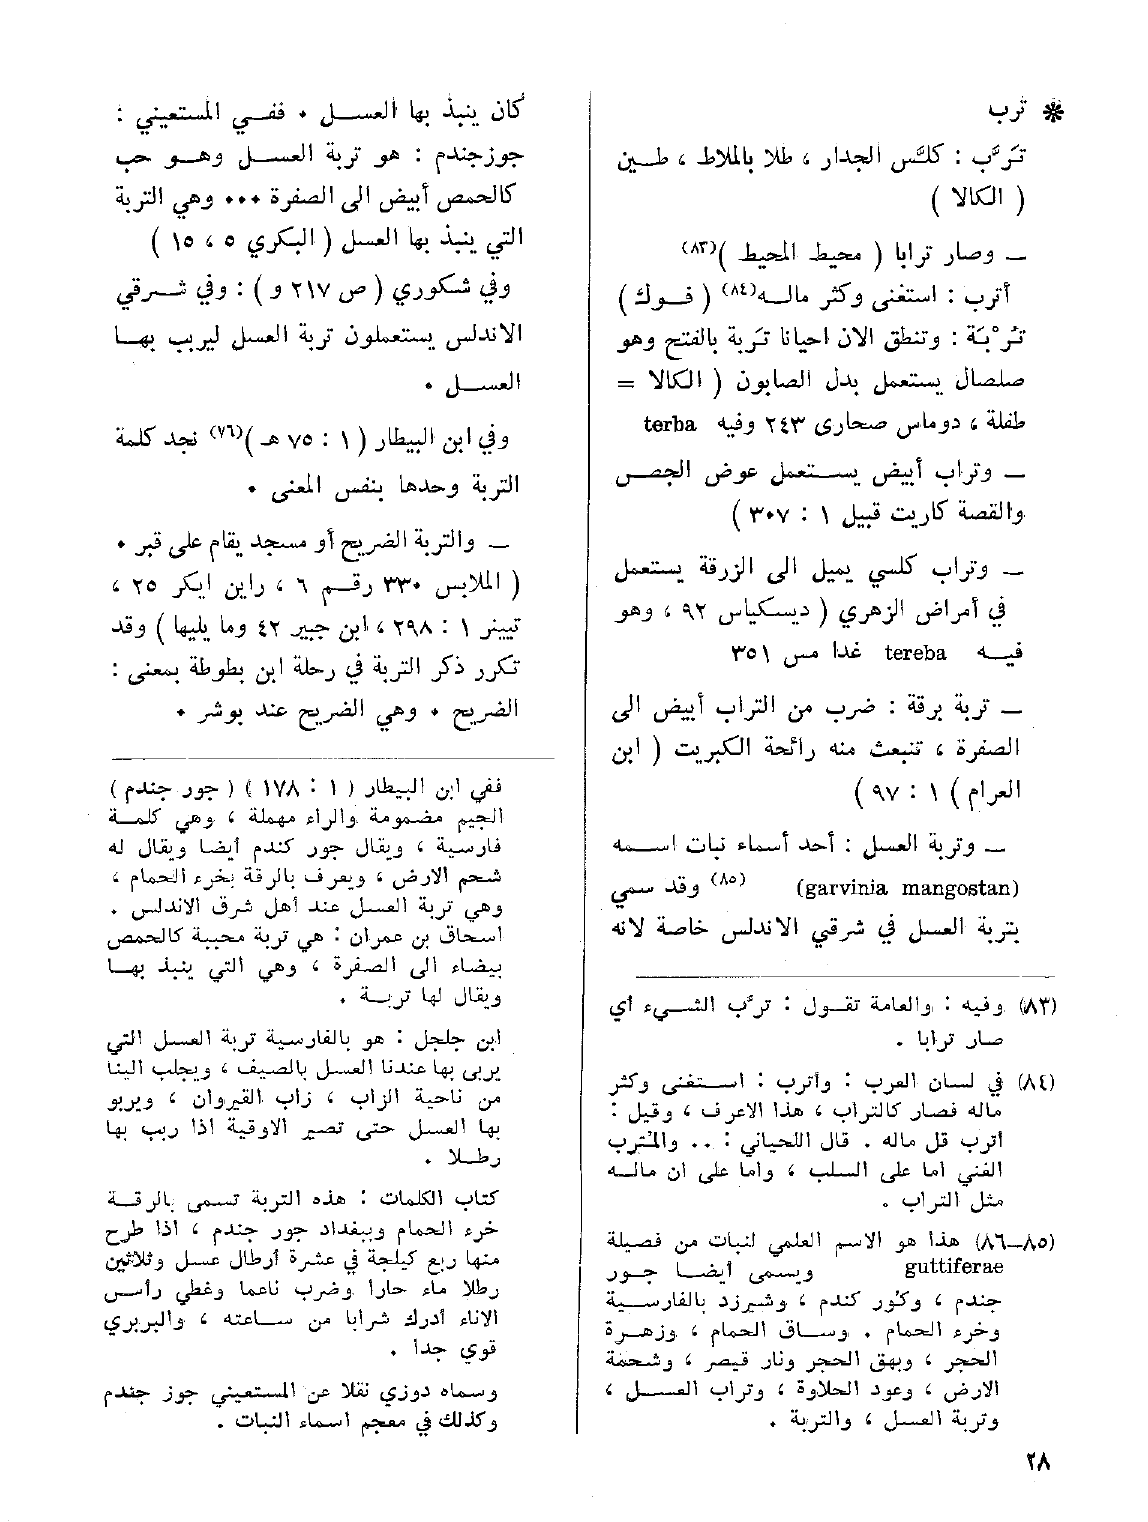 * ترب
تَرَّب : كلَّس الجدار ، طلا بالملاط ، طين
( الكالا )
ـ وصار ترابا ( محيط المحيط )(٨٣)
أترب : استغنى وكثر ماله(٨٤) ( فوك )
تُرْبَة : وتنطق الان احيانا تَربة بالفتح وهو
صلصال يستعمل بدل الصابون ( الكالا =
طفلة ، دوماس صحارى ٢٤٣ وفيه terba
ـ وتراب أبيض يستعمل عوض الجص
والقصة كاريت قبيل ١ : ٣٠٧ )
ـ وتراب كلسي يميل الى الزرقة يستعمل
في أمراض الزهري ( ديسكياس ٩٢ ، وهو
فيه tereba غدا مس ٣٥١
ـ تربة برقة : ضرب من التراب أبيض الى
الصفرة ، تنبعث منه رائحة الكبريت ( ابن
العرام ) ١ : ٩٧ )
ـ وتربة العسل : أحد أسماء نبات اسمه
(garvinia mangostan) (٨٥) وقد سمي
بتربة العسل في شرقي الاندلس خاصة لانه
(٨٣) وفيه : والعامة تقول : ترَّب الشيء أي
صار ترابا .
(٨٤) في لسان العرب : وأترب : استغنى وكثر
ماله فصار كالتراب ، هذا الاعرف ، وقيل :
أترب قل ماله . قال اللحياني : .. والمترب
الغني اما على السلب ، واما على ان ماله
مثل التراب .
(٨٥ـ٨٦) هذا هو الاسم العلمي لنبات من فصيلة
guttiferae ويسمى أيضا جور
جندم ، وكور كندم ، وشيرزد بالفارسية
وخرء الحمام . وساق الحمام ، وزهرة
الحجر ، وبهق الحجر ونار قيصر ، وشحمة
الارض ، وعود الحلاوة ، وتراب العسل ،
وتربة العسل ، والتربة .
كان ينبذ بها العسل . ففي المستعيني :
جوزجندم : هو تربة العسل وهو حب
كالحمص أبيض الى الصفرة ... وهي التربة
التي ينبذ بها العسل ( البكري ٥ ، ١٥ )
وفي شكوري ( ص ٢١٧ و ) : وفي شرقي
الاندلس يستعملون تربة العسل ليربب بها
العسل .
وفي ابن البيطار ( ١ : ٧٥ هـ )(٧٦) نجد كلمة
التربة وحدها بنفس المعنى .
ـ والتربة الضريح أو مسجد يقام على قبر .
( الملابس ٣٣٠ رقم ٦ ، راين ايكر ٢٥ ،
تييشر ١ : ٢٩٨ ، ابن جبير ٤٢ وما يليها ) وقد
تكرر ذكر التربة في رحلة ابن بطوطة بمعنى :
الضريح . وهي الضريح عند بوشر .
ففي ابن البيطار ( ١ : ١٧٨ ) ( جور جندم )
الجيم مضمومة والراء مهملة ، وهي كلمة
فارسية ، ويقال جور كندم أيضا ويقال له
شحم الارض ، ويعرف بالرقة بخرء الحمام ،
وهي تربة العسل عند أهل شرق الاندلس .
اسحاق بن عمران : هي تربة محببة كالحمص
بيضاء الى الصفرة ، وهي التي ينبذ بها
ويقال لها تربة .
ابن جلجل : هو بالفارسية تربة العسل التي
يربى بها عندنا العسل بالصيف ، ويجلب الينا
من ناحية الزاب ، زاب القيروان ، ويربو
بها العسل حتى تصير الاوقية اذا ربب بها
رطلا .
كتاب الكلمات : هذه التربة تسمى بالرقة
خرء الحمام وببغداد جور جندم ، اذا طرح
منها ربع كيلجة في عشرة أرطال عسل وثلاثين
رطلا ماء حاراً وضرب ناعما وغطي رأس
الاناء أدرك شرابا من ساعته ، والبربري
قوي جداً .
وسماه دوزي نقلا عن المستعيني جوز جندم
وكذلك في معجم اسماء النبات .
٢٨